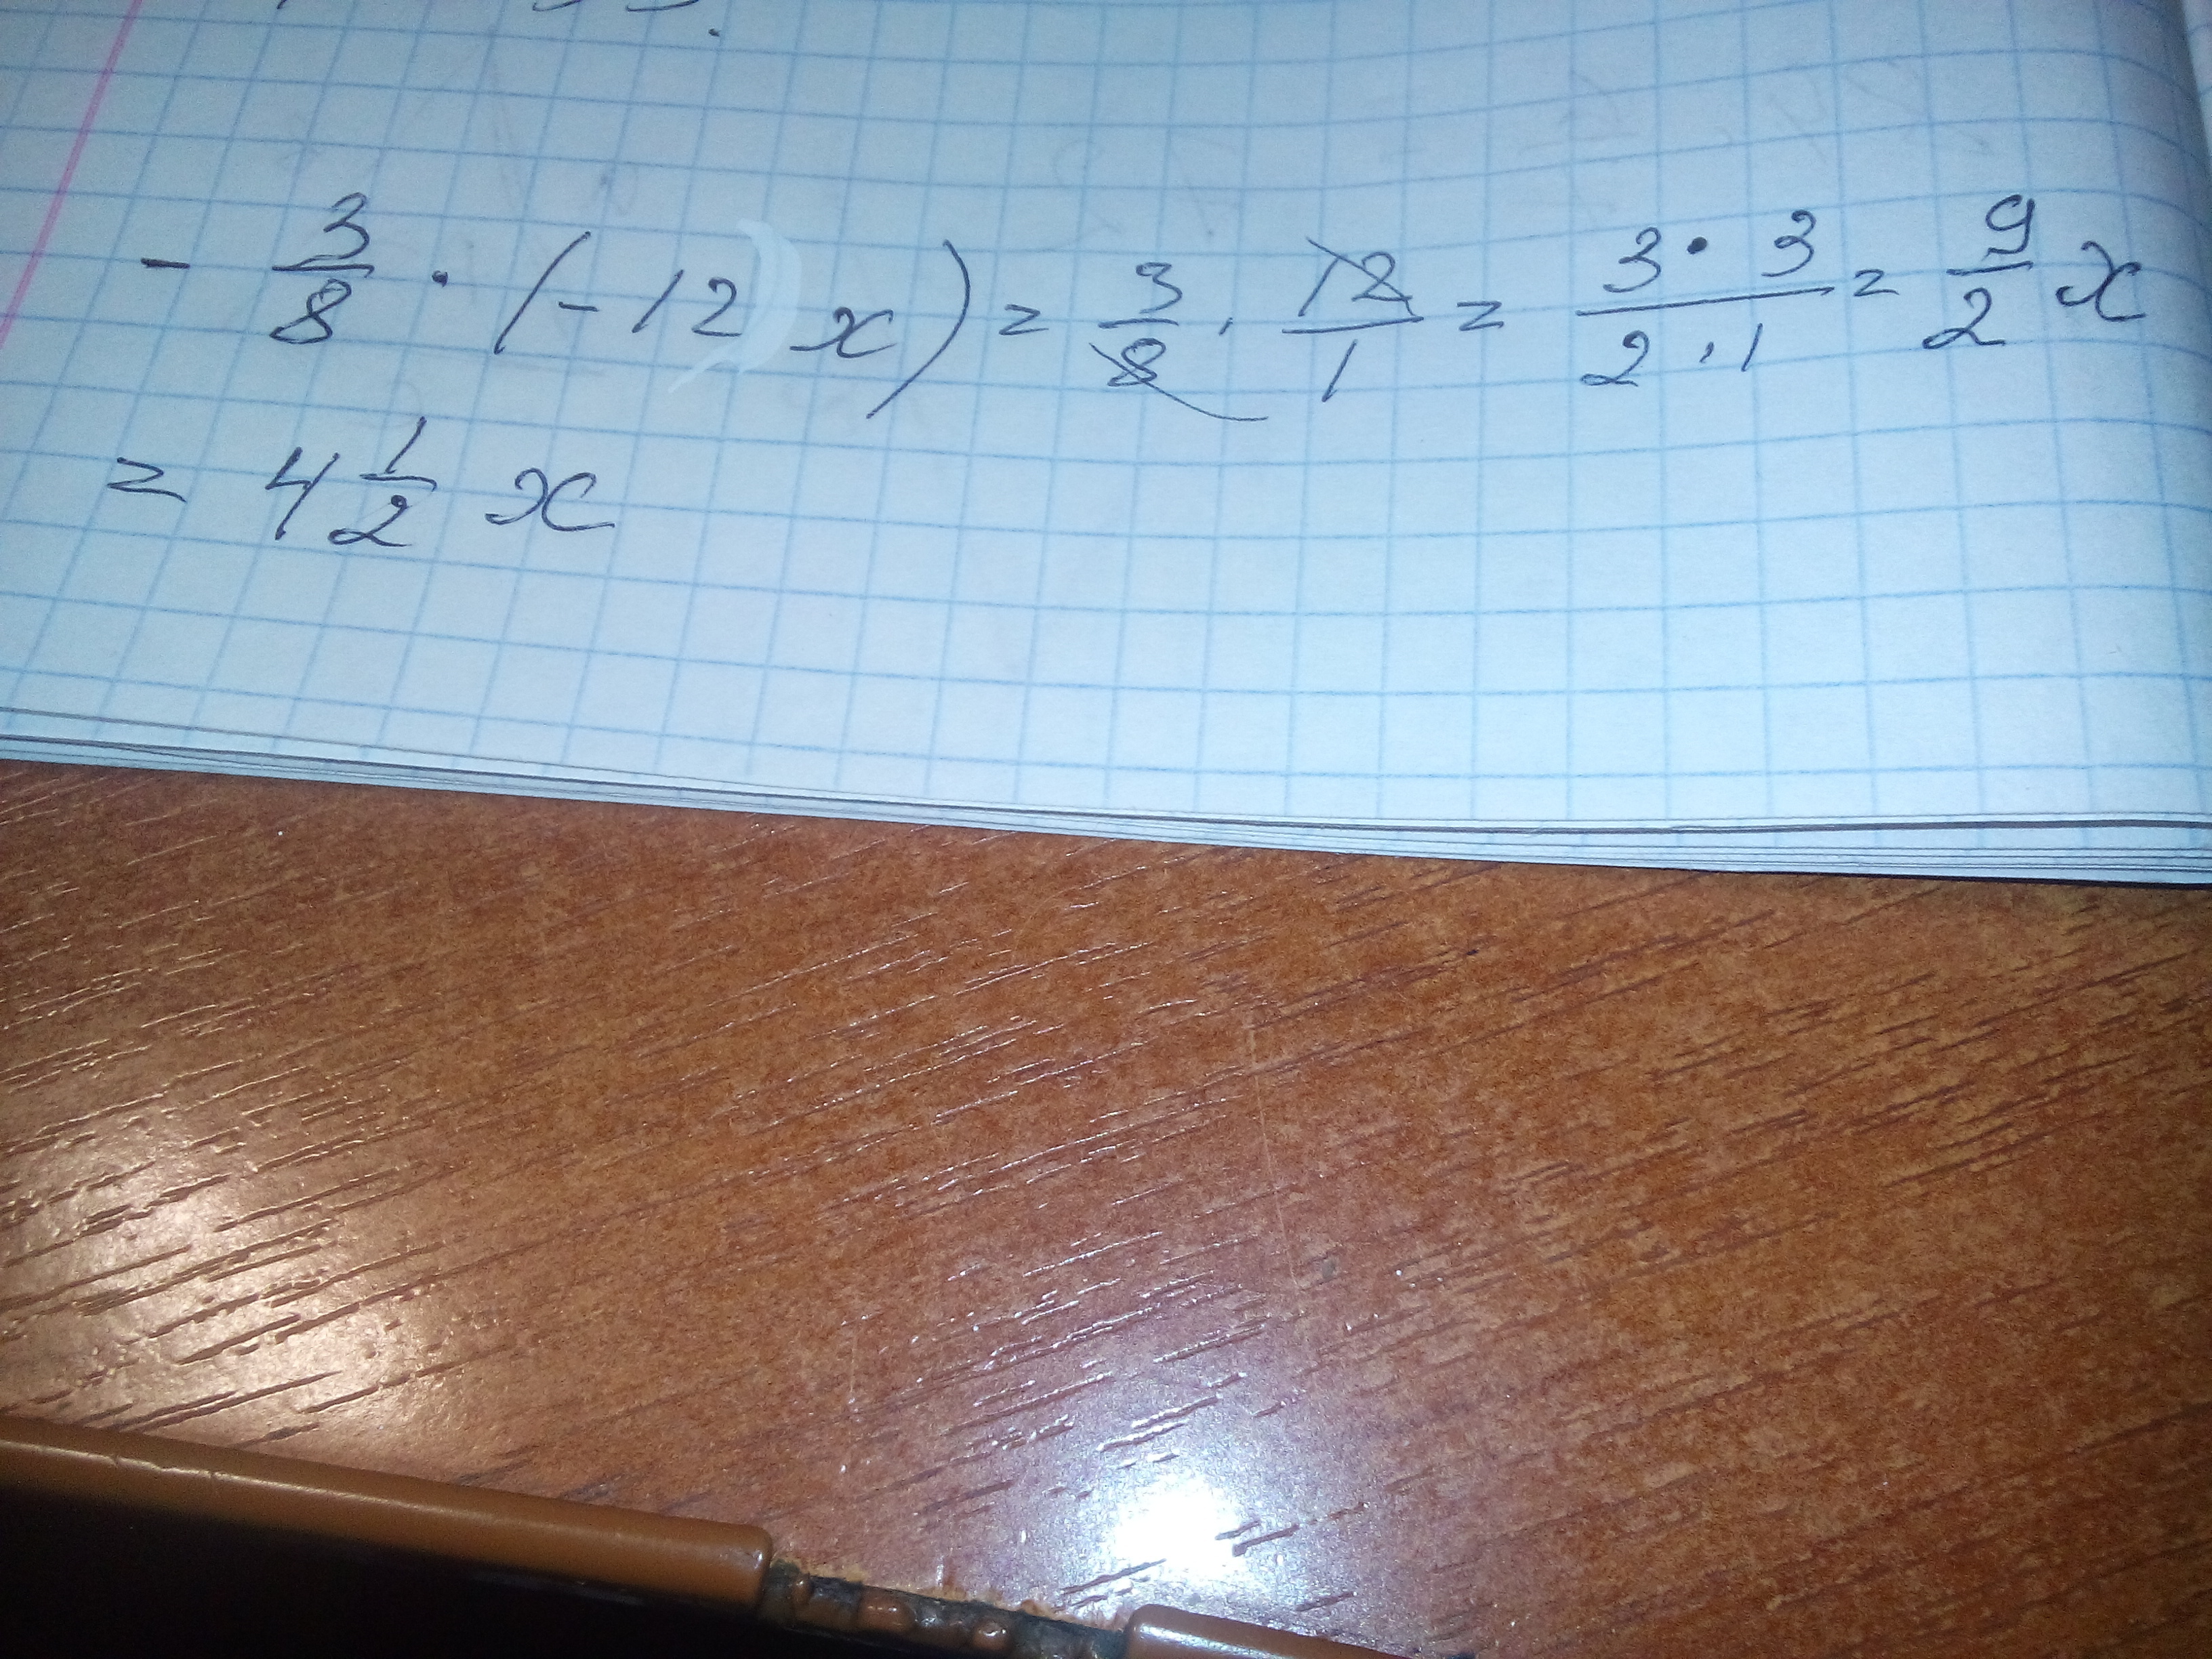 - 3/8 · (-12 x) = 3/8 · 12/1 = 3 · 3/2 · 1 = 9/2 x
= 4 1/2 x